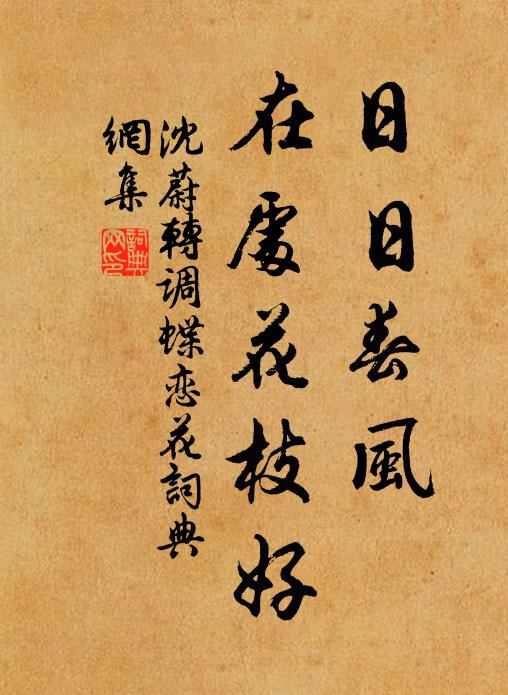 日日春風
在處花枝好
沈蔚轉調蝶恋花詞典
網集
詞典網印